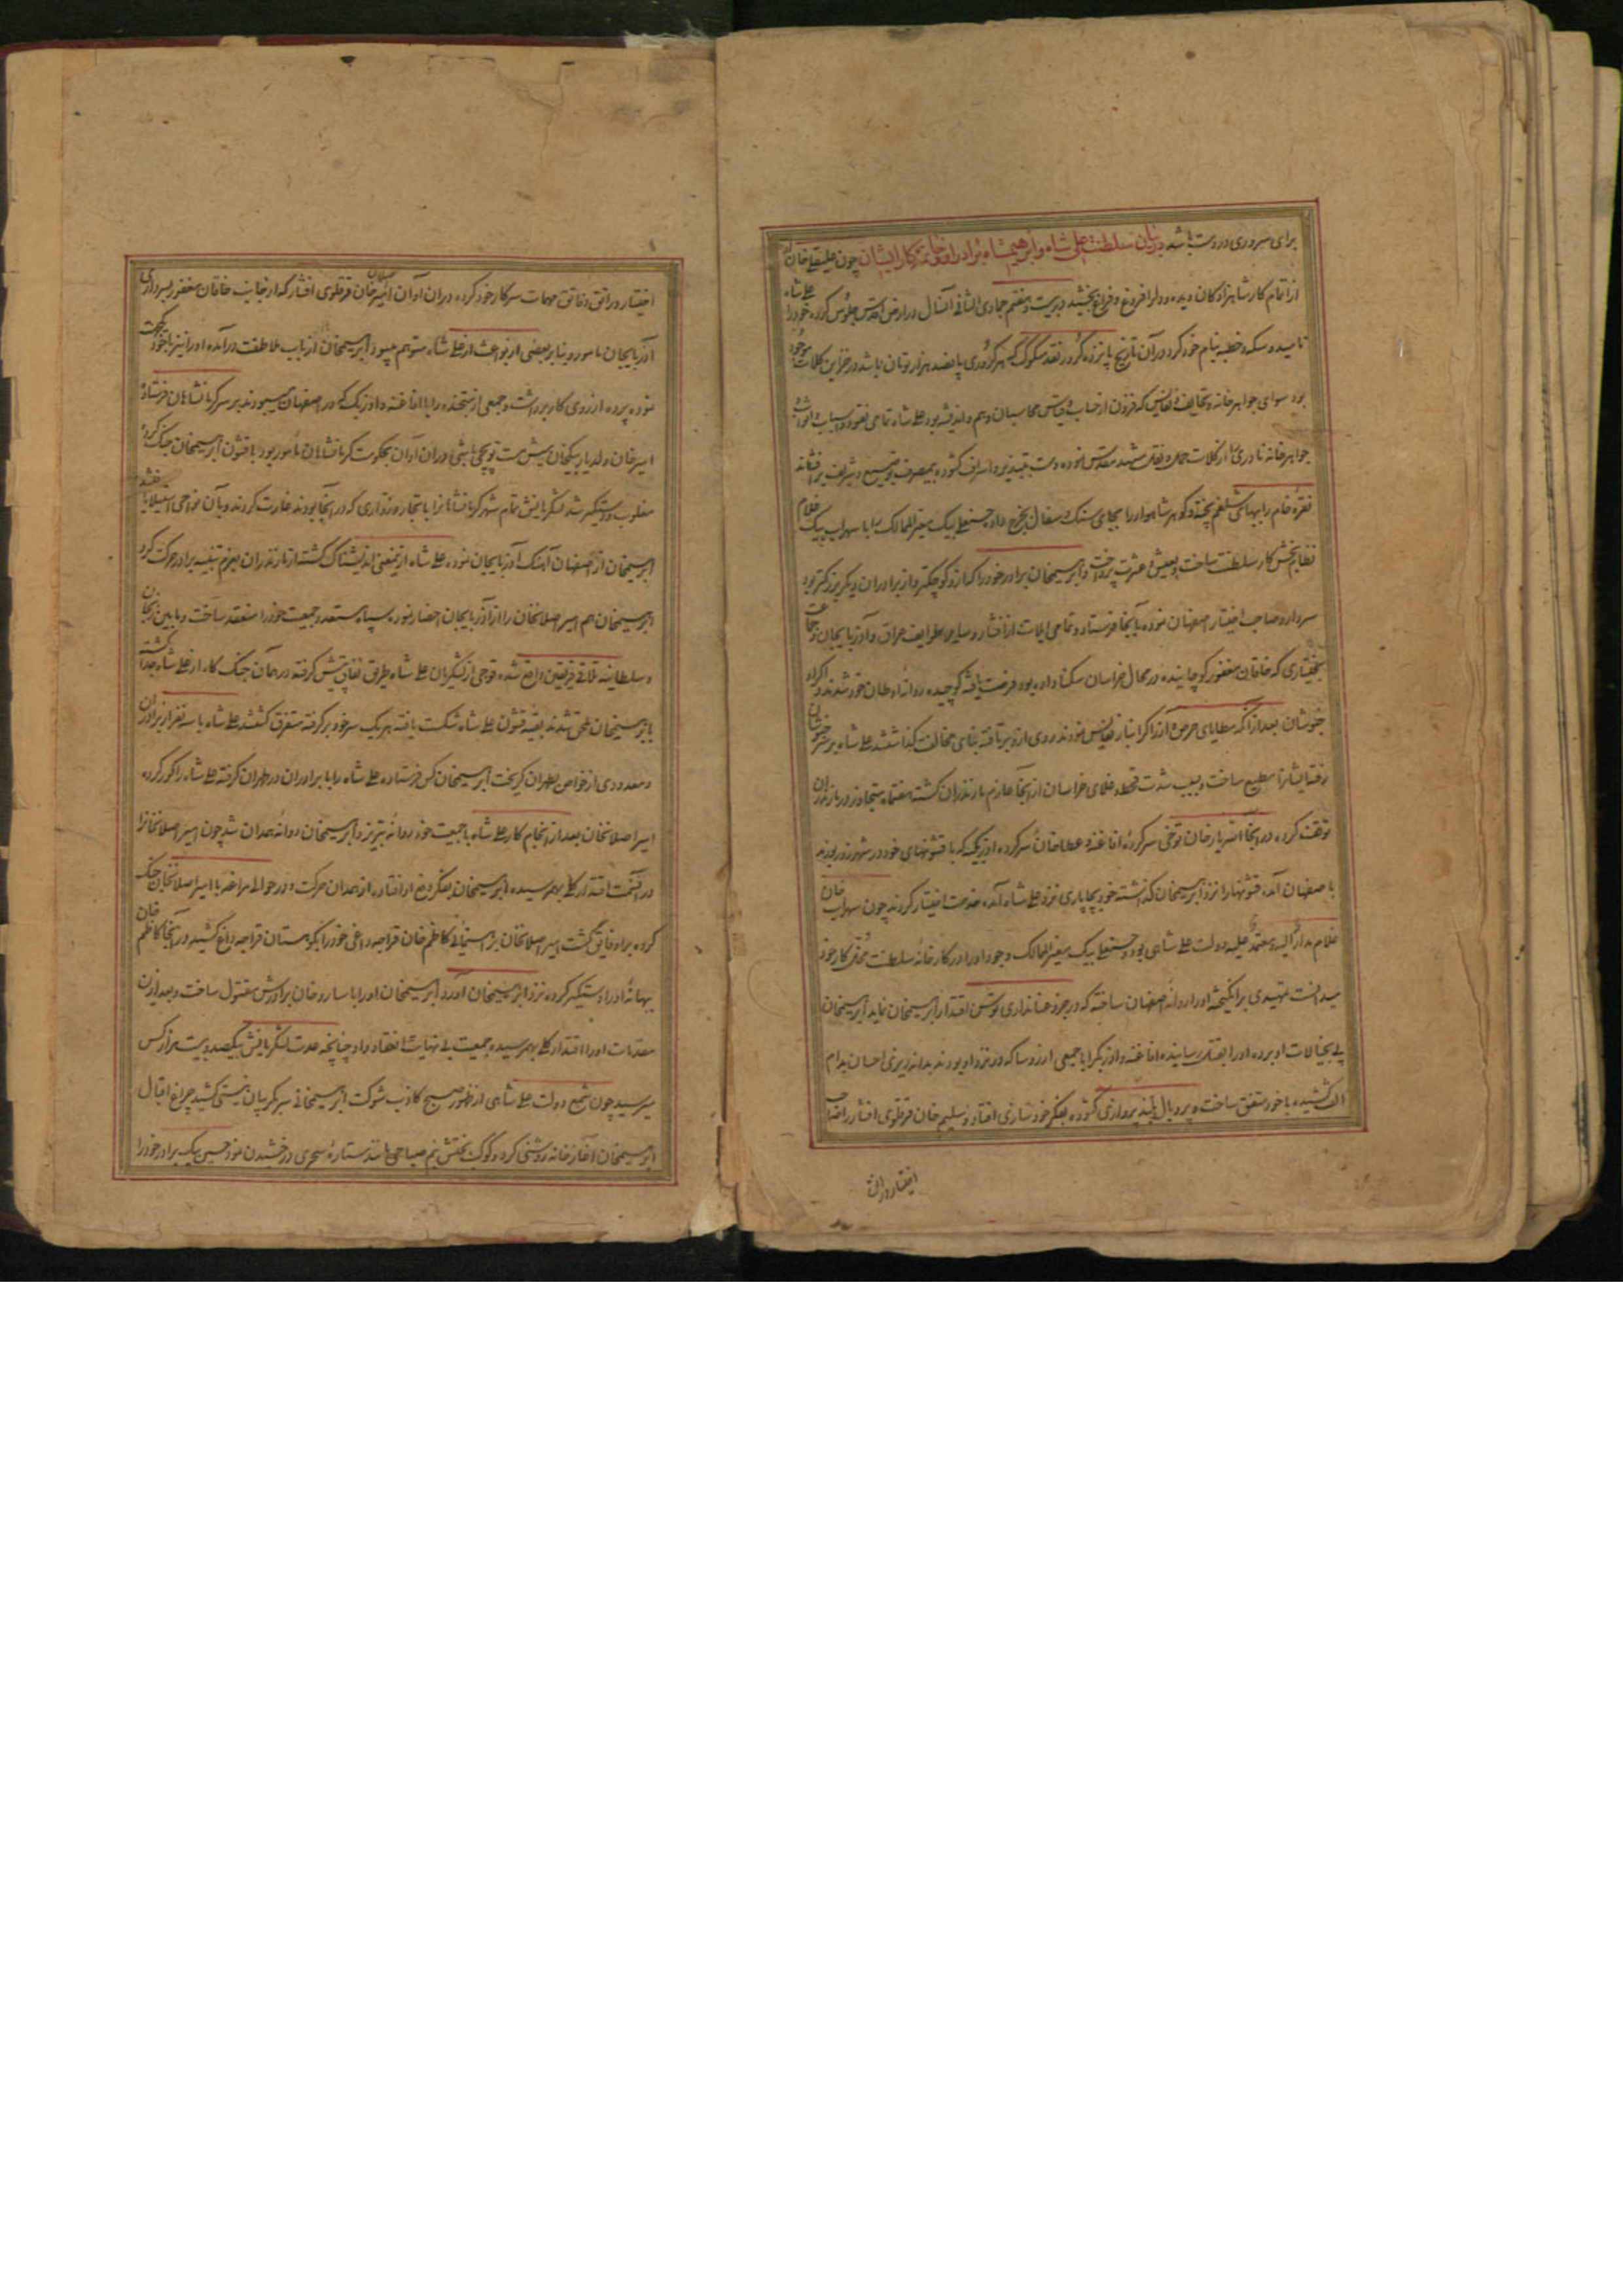 برای سروری درو ست باشد در بیان سلطنت علی شاه و ابرهیم شاه برادر او و خاتمه کار ایشان چون علیقلی خان
از اتمام کار شاهزادکان دیده و دل را فروغ و فراغ بخشید در بیست و هفتم جمادی الثانی آنسال در ارض اقدس جلوس کرده خود را علی شاه
نامید و سکه و خطبه بنام خود کرد در آن تاریخ پانزده کرور نقد مسکوک که هر کروری پانصد هزار تومان باشد در خزاین کلات موجود
بود سوای جواهر خانه و تحایف و نفایس که فزون از حساب و قیاس محاسبان وهم و اندیشه بود علی شاه تمامی نقود و اسباب و اثواب
جواهر خانه نادری را از کلات حمل و نقل مشهد مقدس نموده دست بتبذیر و اسراف کشوده بیمصرف بوضیع و شریف بر افشاند
نقره خام را ببهای شلغم پخته و گوهر شاهوار را بجای سنک و سفال بخرج داد حسنعلی بیک معیر الممالک را با سهراب بیک غلام
نظام بخش کار سلطنت ساخت و بعیش و عشرت پرداخت و ابرهیمخان برادر خود را که از و کوچکتر و از برادران دیکر بزرکتر بود
سردار و صاحب اختیار اصفهان نموده بانجا فرستاد و تمامی ایلات از افشار و سایر طوایف عراق و آذربایجان و جماعت
بختیاری که خاقان مغفور کوچانیده در محال خراسان سکنا داده بود فرصت یافته کوچیده روانه اوطان خود شدند و اکراد
خبوشان بعد از آنکه مطایای حرص و آز را کرانبار نفایس نمودند روی ازو بر تافته بنای مخالفت کذاشتند علی شاه بر سر خبوشان
رفته ایشانرا مطیع ساخت و بسبب شدت قحط و غلای خراسان از انجا عازم مازندران کشته هفت ماه متجاوز در مازندران
توقف کرد در انجا الله یار خان توخی سرکرده افاغنه و عطا خان سرکرده اوزبکیه که با قشونهای خود در شهر زور بودند
باصفهان آمده قشونها را نزد ابرهیمخان کذاشته خود بچاپاری نزد علی شاه آمده خدمت اختیار کردند چون سهراب خان
غلام مدار الیه و معتمد علیه دولت علی شاهی بود و حسنعلی بیک معیر الممالک وجود او را در کارخانه سلطنت مخل کار خود
میدانست تمهیدی برانکیخته او را روانه اصفهان ساخته که در جزو عناناری توسن اقتدار ابرهیمخان نماید ابرهیمخان
پی بخیالات او برده او را بقتل رسانیده افاغنه و اوزبک را با جمعی از رؤسا که در نزد او بودند بدانه ریزی احسان بدام
الفت کشیده با خود متفق ساخت و پر و بال بلند پروازی کشوده بفکر خود سازی افتاد و سلیم خان قرقلوی افشار را صاحب
اختیار و راتق
اختیار و راتق و فاتق مهمات سرکار خود کرده دران اوان امیر اصلان خان قرقلوی افشار که از جانب خاقان مغفور بسرداری
آذربایجان مامور و بنا بر بعضی از بواعث از علی شاه متوهم میبود ابرهیمخان از باب ملاطفت درآمده او را نیز با خود یکجهت
نموده پرده از روی کار برداشت و جمعی از متحنده را با افاغنه و اوزبک که در اصفهان میبودند بر سر کرمانشاهان فرستاد
امیر خان ولد یار بیکخان میش مست توپچی باشی دران آوان بحکومت کرمانشاهان مامور بود با قشون ابرهیمخان جنک کرده
مغلوب و دستکیر شد لشکریانش تمام شهر کرمانشاهانرا با تجار و زواری که در انجا بودند غارت کردند و بآن نواحی استیلا یافتند
ابرهیمخان از اصفهان آهنک آذربایجان نموده علی شاه ازینمعنی اندیشناک کشته از مازندران بعزم تنبیه برادر حرکت کرد
ابرهیمخان هم امیر اصلانخان را از آذربایجان احضار نموده سپاه مستعد و جمعیت خود را منعقد ساخت و ما بین زنجان
و سلطانیه تلاقی فریقین واقع شده فوجی از لشکریان علی شاه طریق نفاق پیش کرفته در همان جنک کار از علی شاه جدا کشته
بابرهیمخان ملحق شدند بقیه قشون علی شاه شکست یافته هر یک سر خود بر کرفته متفرق کشتند علی شاه با سه نفر از برادران
و معدودی از خواص بطهران کریخت ابرهیمخان کس فرستاده علی شاه را با برادران در طهران کرفته علی شاه را کور کرد
امیر اصلانخان بعد از انجام کار علی شاه با جمعیت خود روانه تبریز و ابرهیمخان روانه همدان شد چون امیر اصلانخانرا
در آنسمت اقتدار کلی بهم رسیده ابرهیمخان بفکر دفع او افتاده از همدان حرکت و در حوالی مراغه با امیر اصلانخان جنک
کرده بر او فایق کشت امیر اصلانخان برهنمائی کاظم خان قراجه داغی خود را بکوهستان قراجه داغ کشید در آنجا کاظم خان
بیهانه او را دستکیر کرده نزد ابرهیمخان آورد ابرهیمخان او را با ساروخان برادرش مقتول ساخت و بعد ازین
مقدمات او را اقتدار کلی بهم رسیده جمعیت بی نهایت انعقاد داد چنانچه عدت لشکریانش بیکصد و بیست هزار کس
میرسید چون شمع دولت علی شاهی از ظهور صبح کاذب شوکت ابرهیمخانی سر بکریبان نیستی کشید چراغ اقبال
ابرهیمخان آغاز خانه روشنی کرد و کوکب بختش نیم صباحی مانند ستاره سحری درخشیدن نمود حسین بیک برادر خود را